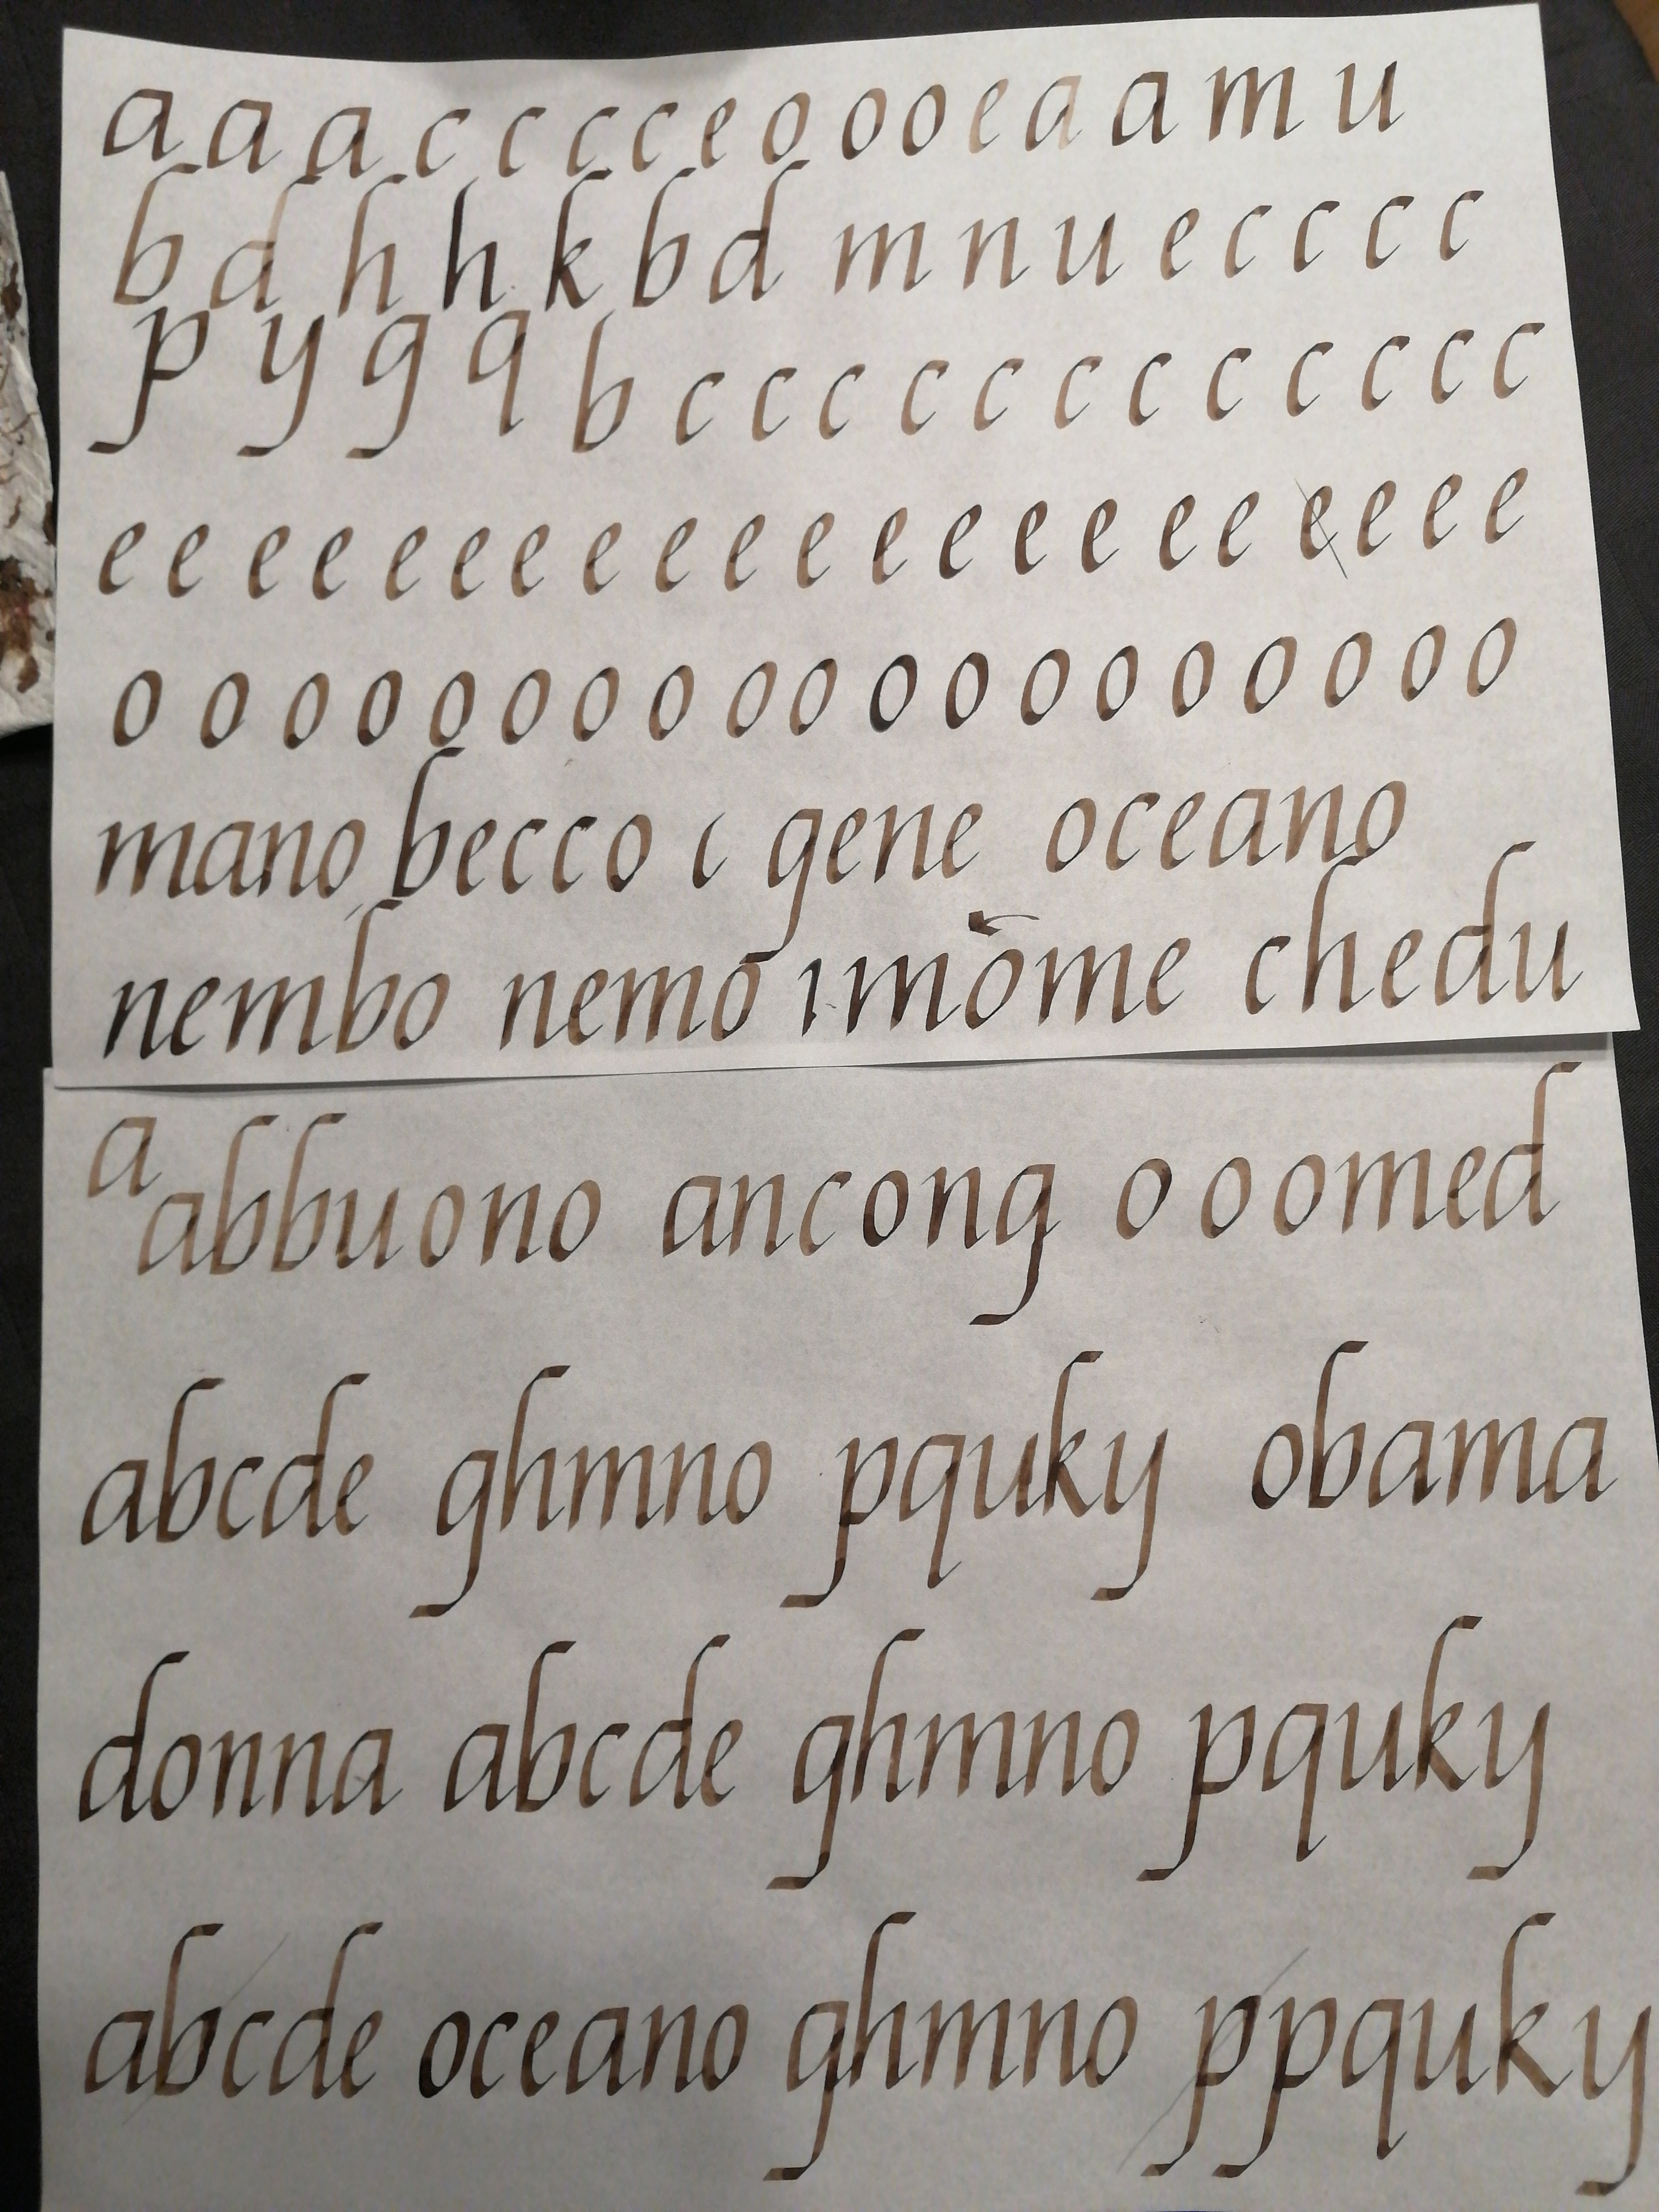 a a a c c c c e o o o e a a m u
b d h h k b d m n u e c c c c
p y g q b c c c c c c c c c c c c
e e e e e e e e e e e e e e e e e e e e
o o o o o o o o o o o o o o o o o o o
mano becco ι gene oceano
nembo nemo ımome chedu
a
abbuono ancong o o omed
abcde ghmno pquky obama
donna abcde ghmno pquky
abcde oceano ghmno ppquky